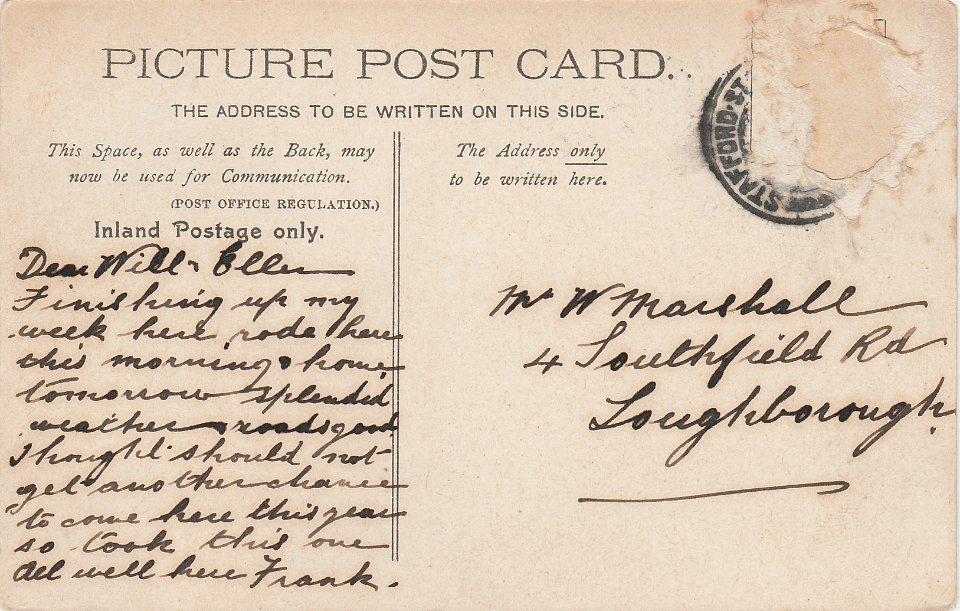 PICTURE POST CARD.
THE ADDRESS TO BE WRITTEN ON THIS SIDE.
This Space, as well as the Back, may
now be used for Communication.
(POST OFFICE REGULATION.)
Inland Postage only.
The Address only
to be written here.
STAFFORD·ST
Dear Will & Ellen
Finishing up my
week here rode here
this morning & home
tomorrow splendid
weather & roads good
Thought I should not
get another chance
to come here this year
so took this one
All well here Frank.
Mr W Marshall
4 Southfield Rd
Loughborough.